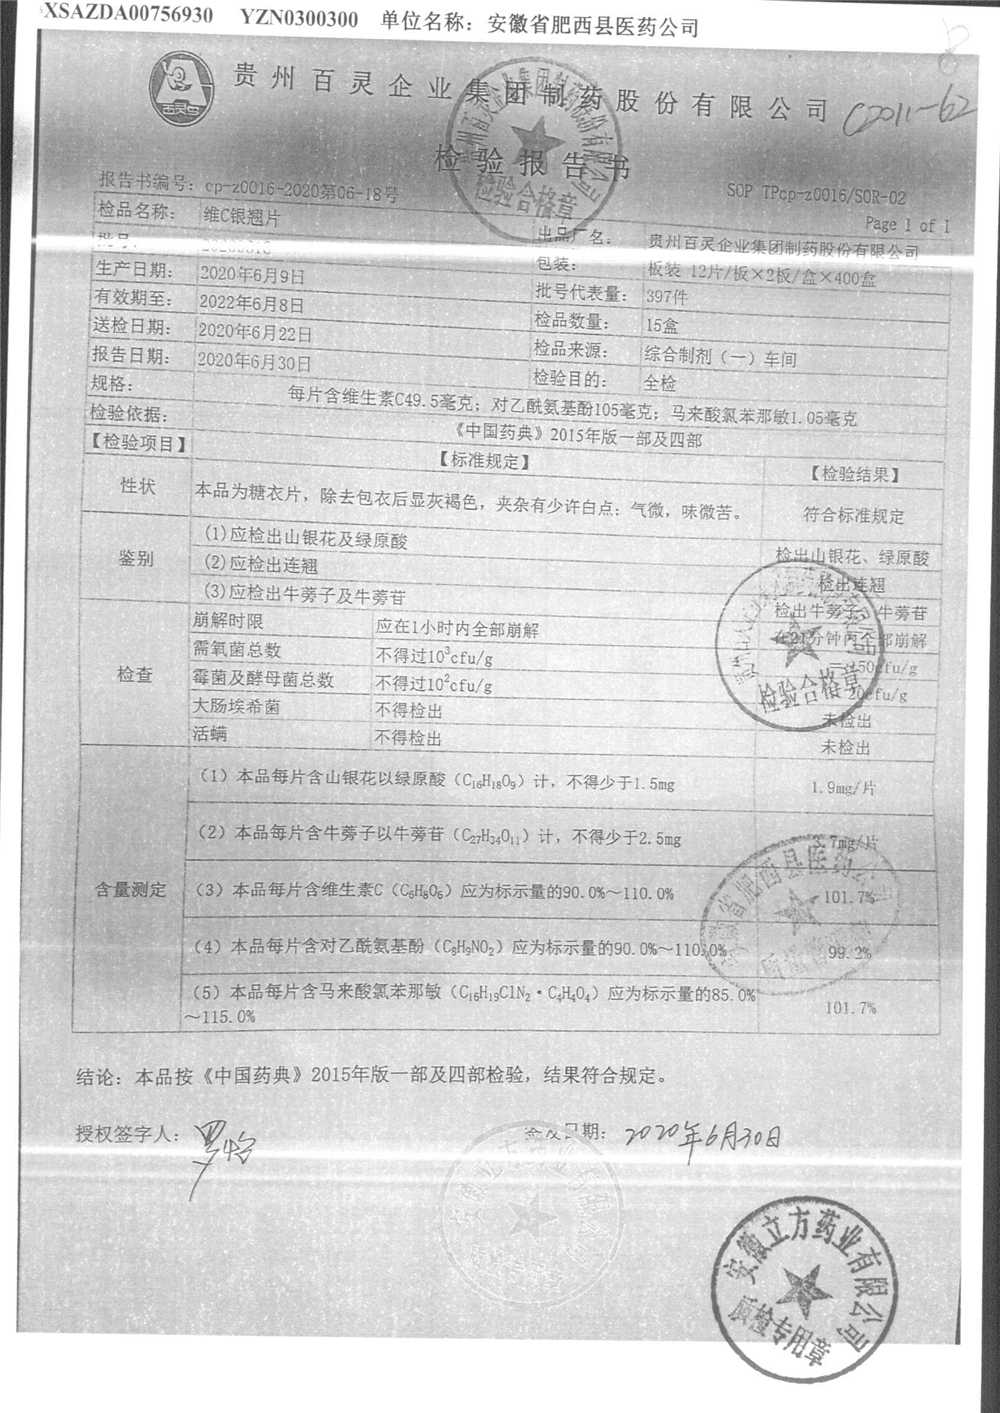 XSAZDA00756930 YZN0300300 单位名称：安徽省肥西县医药公司
贵州百灵企业集团制药股份有限公司
C2011-62
检验报告书
报告书编号：cp-z0016-2020第06-18号 SOP TPcp-z0016/SOR-02
Page 1 of 1
检品名称： 维C银翘片 出品厂名： 贵州百灵企业集团制药股份有限公司
批号： 包装： 板装 12片/板×2板/盒×400盒
生产日期： 2020年6月9日 批号代表量： 397件
有效期至： 2022年6月8日 检品数量： 15盒
送检日期： 2020年6月22日 检品来源： 综合制剂（一）车间
报告日期： 2020年6月30日 检验目的： 全检
规格： 每片含维生素C49.5毫克；对乙酰氨基酚105毫克；马来酸氯苯那敏1.05毫克
检验依据： 《中国药典》2015年版一部及四部
【检验项目】 【标准规定】 【检验结果】
性状 本品为糖衣片，除去包衣后显灰褐色，夹杂有少许白点；气微，味微苦。 符合标准规定
鉴别 (1)应检出山银花及绿原酸 检出山银花、绿原酸
(2)应检出连翘 检出连翘
(3)应检出牛蒡子及牛蒡苷 检出牛蒡子、牛蒡苷
检查 崩解时限 应在1小时内全部崩解 在21分钟内全部崩解
需氧菌总数 不得过10³cfu/g 50cfu/g
霉菌及酵母菌总数 不得过10²cfu/g 20cfu/g
大肠埃希菌 不得检出 未检出
活螨 不得检出 未检出
含量测定 （1）本品每片含山银花以绿原酸（C₁₆H₁₈O₉）计，不得少于1.5mg 1.9mg/片
（2）本品每片含牛蒡子以牛蒡苷（C₂₇H₃₄O₁₁）计，不得少于2.5mg 3.7mg/片
（3）本品每片含维生素C（C₆H₈O₆）应为标示量的90.0%～110.0% 101.7%
（4）本品每片含对乙酰氨基酚（C₈H₉NO₂）应为标示量的90.0%～110.0% 99.2%
（5）本品每片含马来酸氯苯那敏（C₁₆H₁₉ClN₂·C₄H₄O₄）应为标示量的85.0%
～115.0% 101.7%
结论：本品按《中国药典》2015年版一部及四部检验，结果符合规定。
授权签字人： 签发日期： 2020年6月30日
检验合格章
检验合格章
安徽省肥西县医药公司
安徽立方药业有限公司
质检专用章